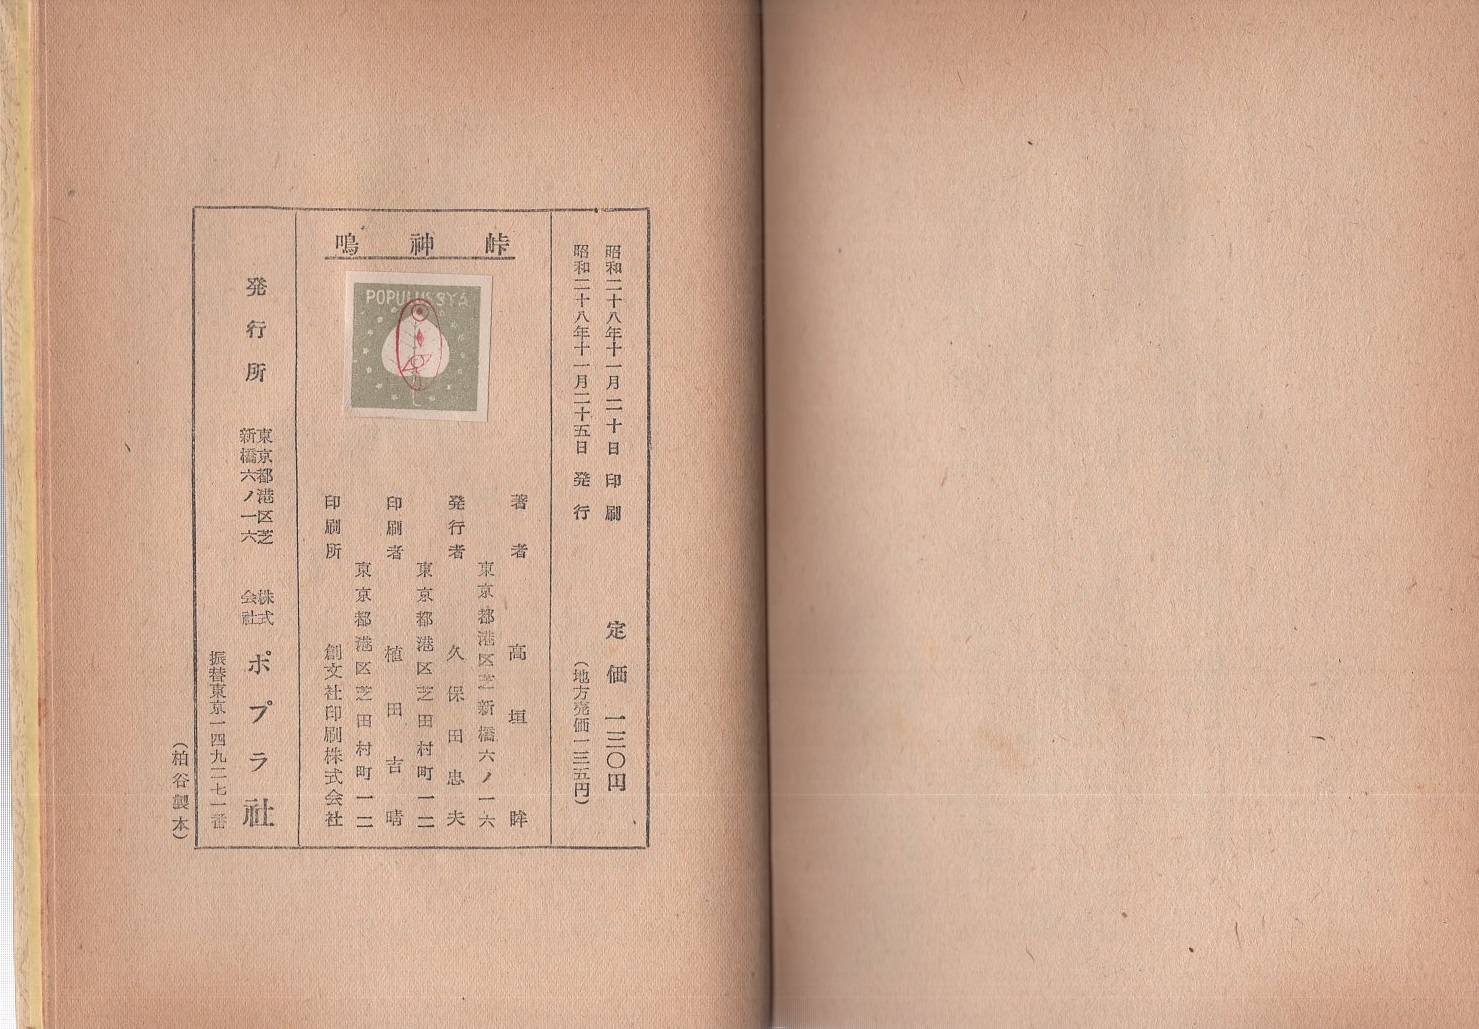 昭和二十八年十一月二十日 印刷
昭和二十八年十一月二十五日 発行
定価 一三〇円
(地方売価一三五円)
鳴神峠
POPULUS SYA
著者 高垣眸
東京都港区芝新橋六ノ一六
発行者 久保田忠夫
東京都港区芝田村町一ノ二
印刷者 植田吉晴
東京都港区芝田村町一ノ二
印刷所 創文社印刷株式会社
発行所
東京都港区芝
新橋六ノ一六
株式
会社
ポプラ社
振替東京一四九二七一番
(柏谷製本)